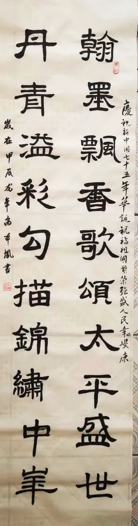 慶祝新中国七十五華誕祝祖國繁榮强盛人民幸康
翰墨飄香歌頌太平盛世
丹青溢彩勾描錦繡中華
歲在甲辰年高書